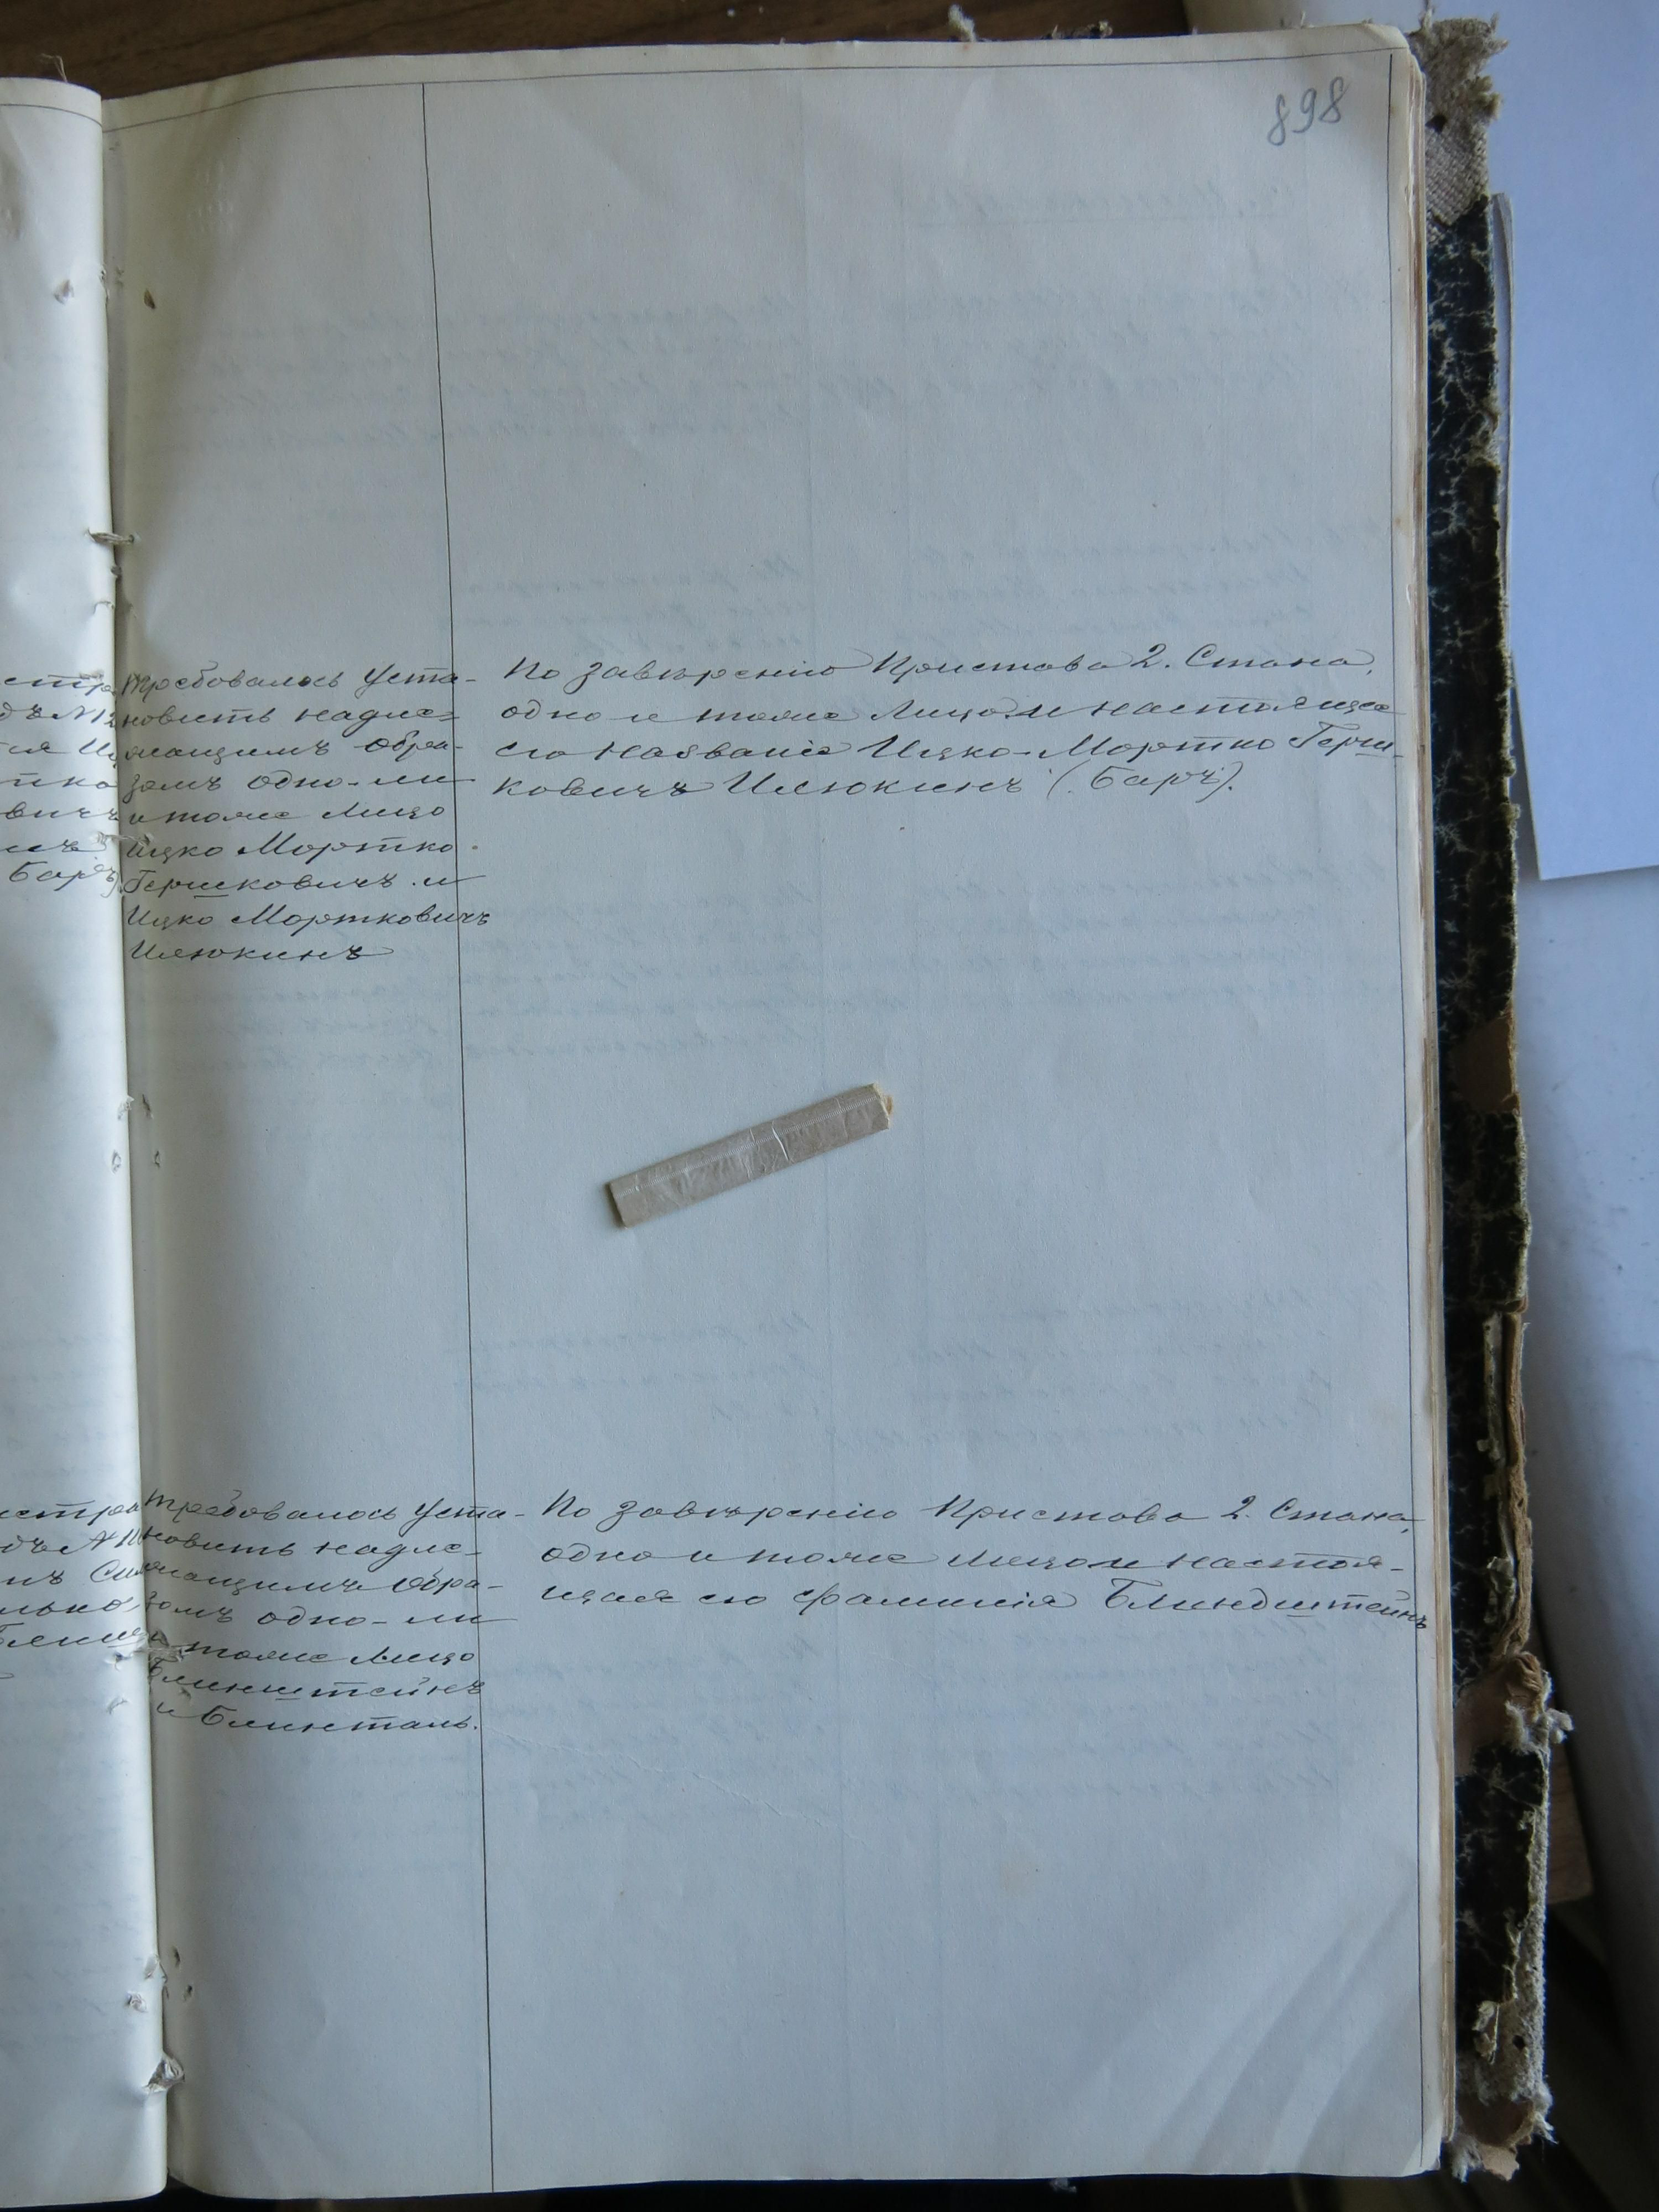 898
Требовалось уста-
новить надле-
жащимъ обра-
зомъ одно-ли
и тоже лицо
Ицко Мортко
Гершковичъ и
Ицко Мортковичъ
Илюкинъ
По завѣренію Пристава 2. Стана,
одно и тоже лицо и настоящее
его названіе Ицко-Мортко Герш-
ковичъ Илюкинъ (Баръ).
Требовалось уста-
новить надле-
жащимъ обра-
зомъ одно-ли
и тоже лицо
Блинштейнъ
и Блинталь.
По завѣренію Пристава 2. Стана,
одно и тоже лицо и настоя-
щая его фамилія Блиндштейнъ